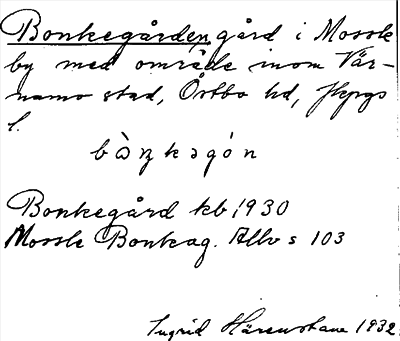 Bonkegården, gård i Mossle
by med område inom Vär-
namo stad, Östbo hd, Jkpgs
l.
bòŋkəgón
Bonkegård kb 1930
Mossle Bonkag. Allv s 103
Ingrid Härenstam 1932